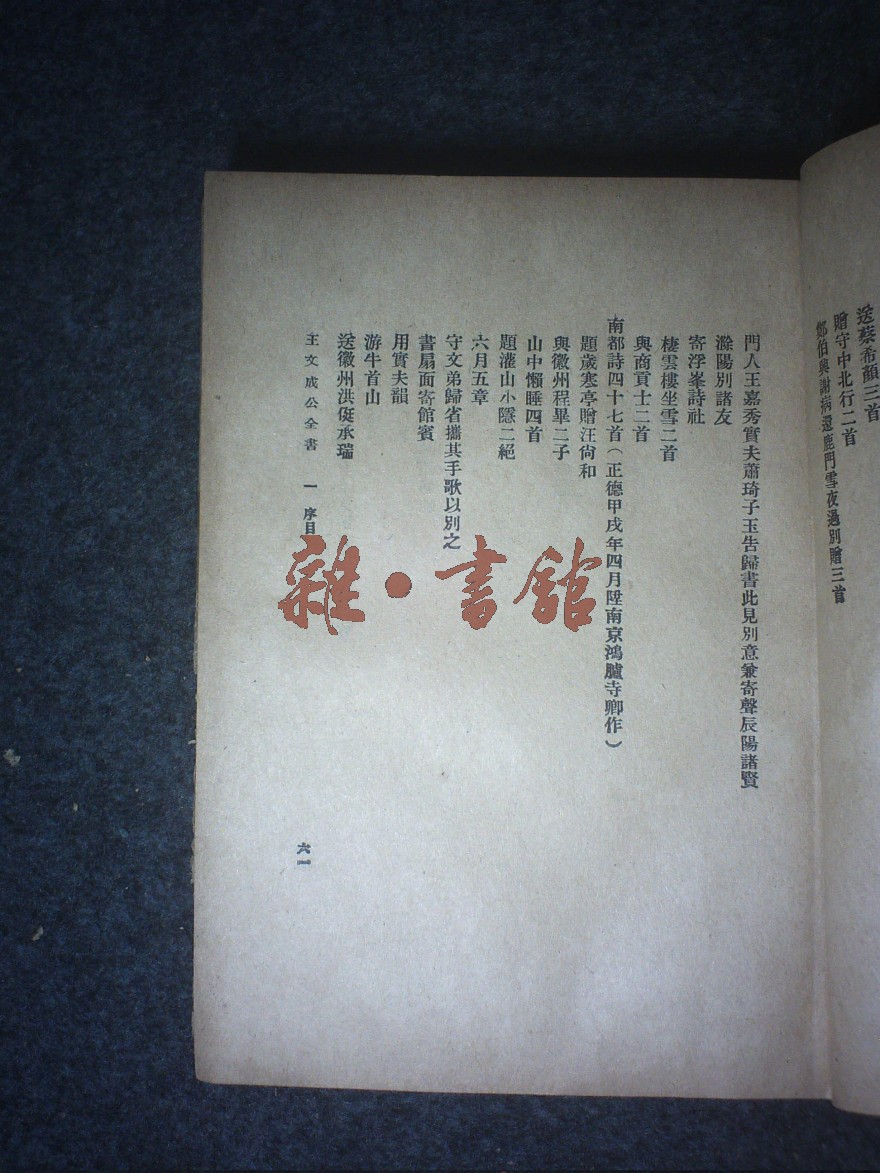 送蔡希顏三首
贈守中北行二首
鄭伯興謝病還鹿門雪夜過別贈三首
門人王嘉秀實夫蕭琦子玉告歸書此見別意兼寄聲辰陽諸賢
滁陽別諸友
寄浮峯詩社
棲雲樓坐雪二首
與商貢士二首
南都詩四十七首(正德甲戌年四月陞南京鴻臚寺卿作)
題歲寒亭贈汪尙和
與徽州程畢二子
山中懶睡四首
題灌山小隱二絕
六月五章
守文弟歸省攜其手歌以別之
書扇面寄館賓
用實夫韻
游牛首山
送徽州洪侹承瑞
王文成公全書 一 序目
六一
雜·書館